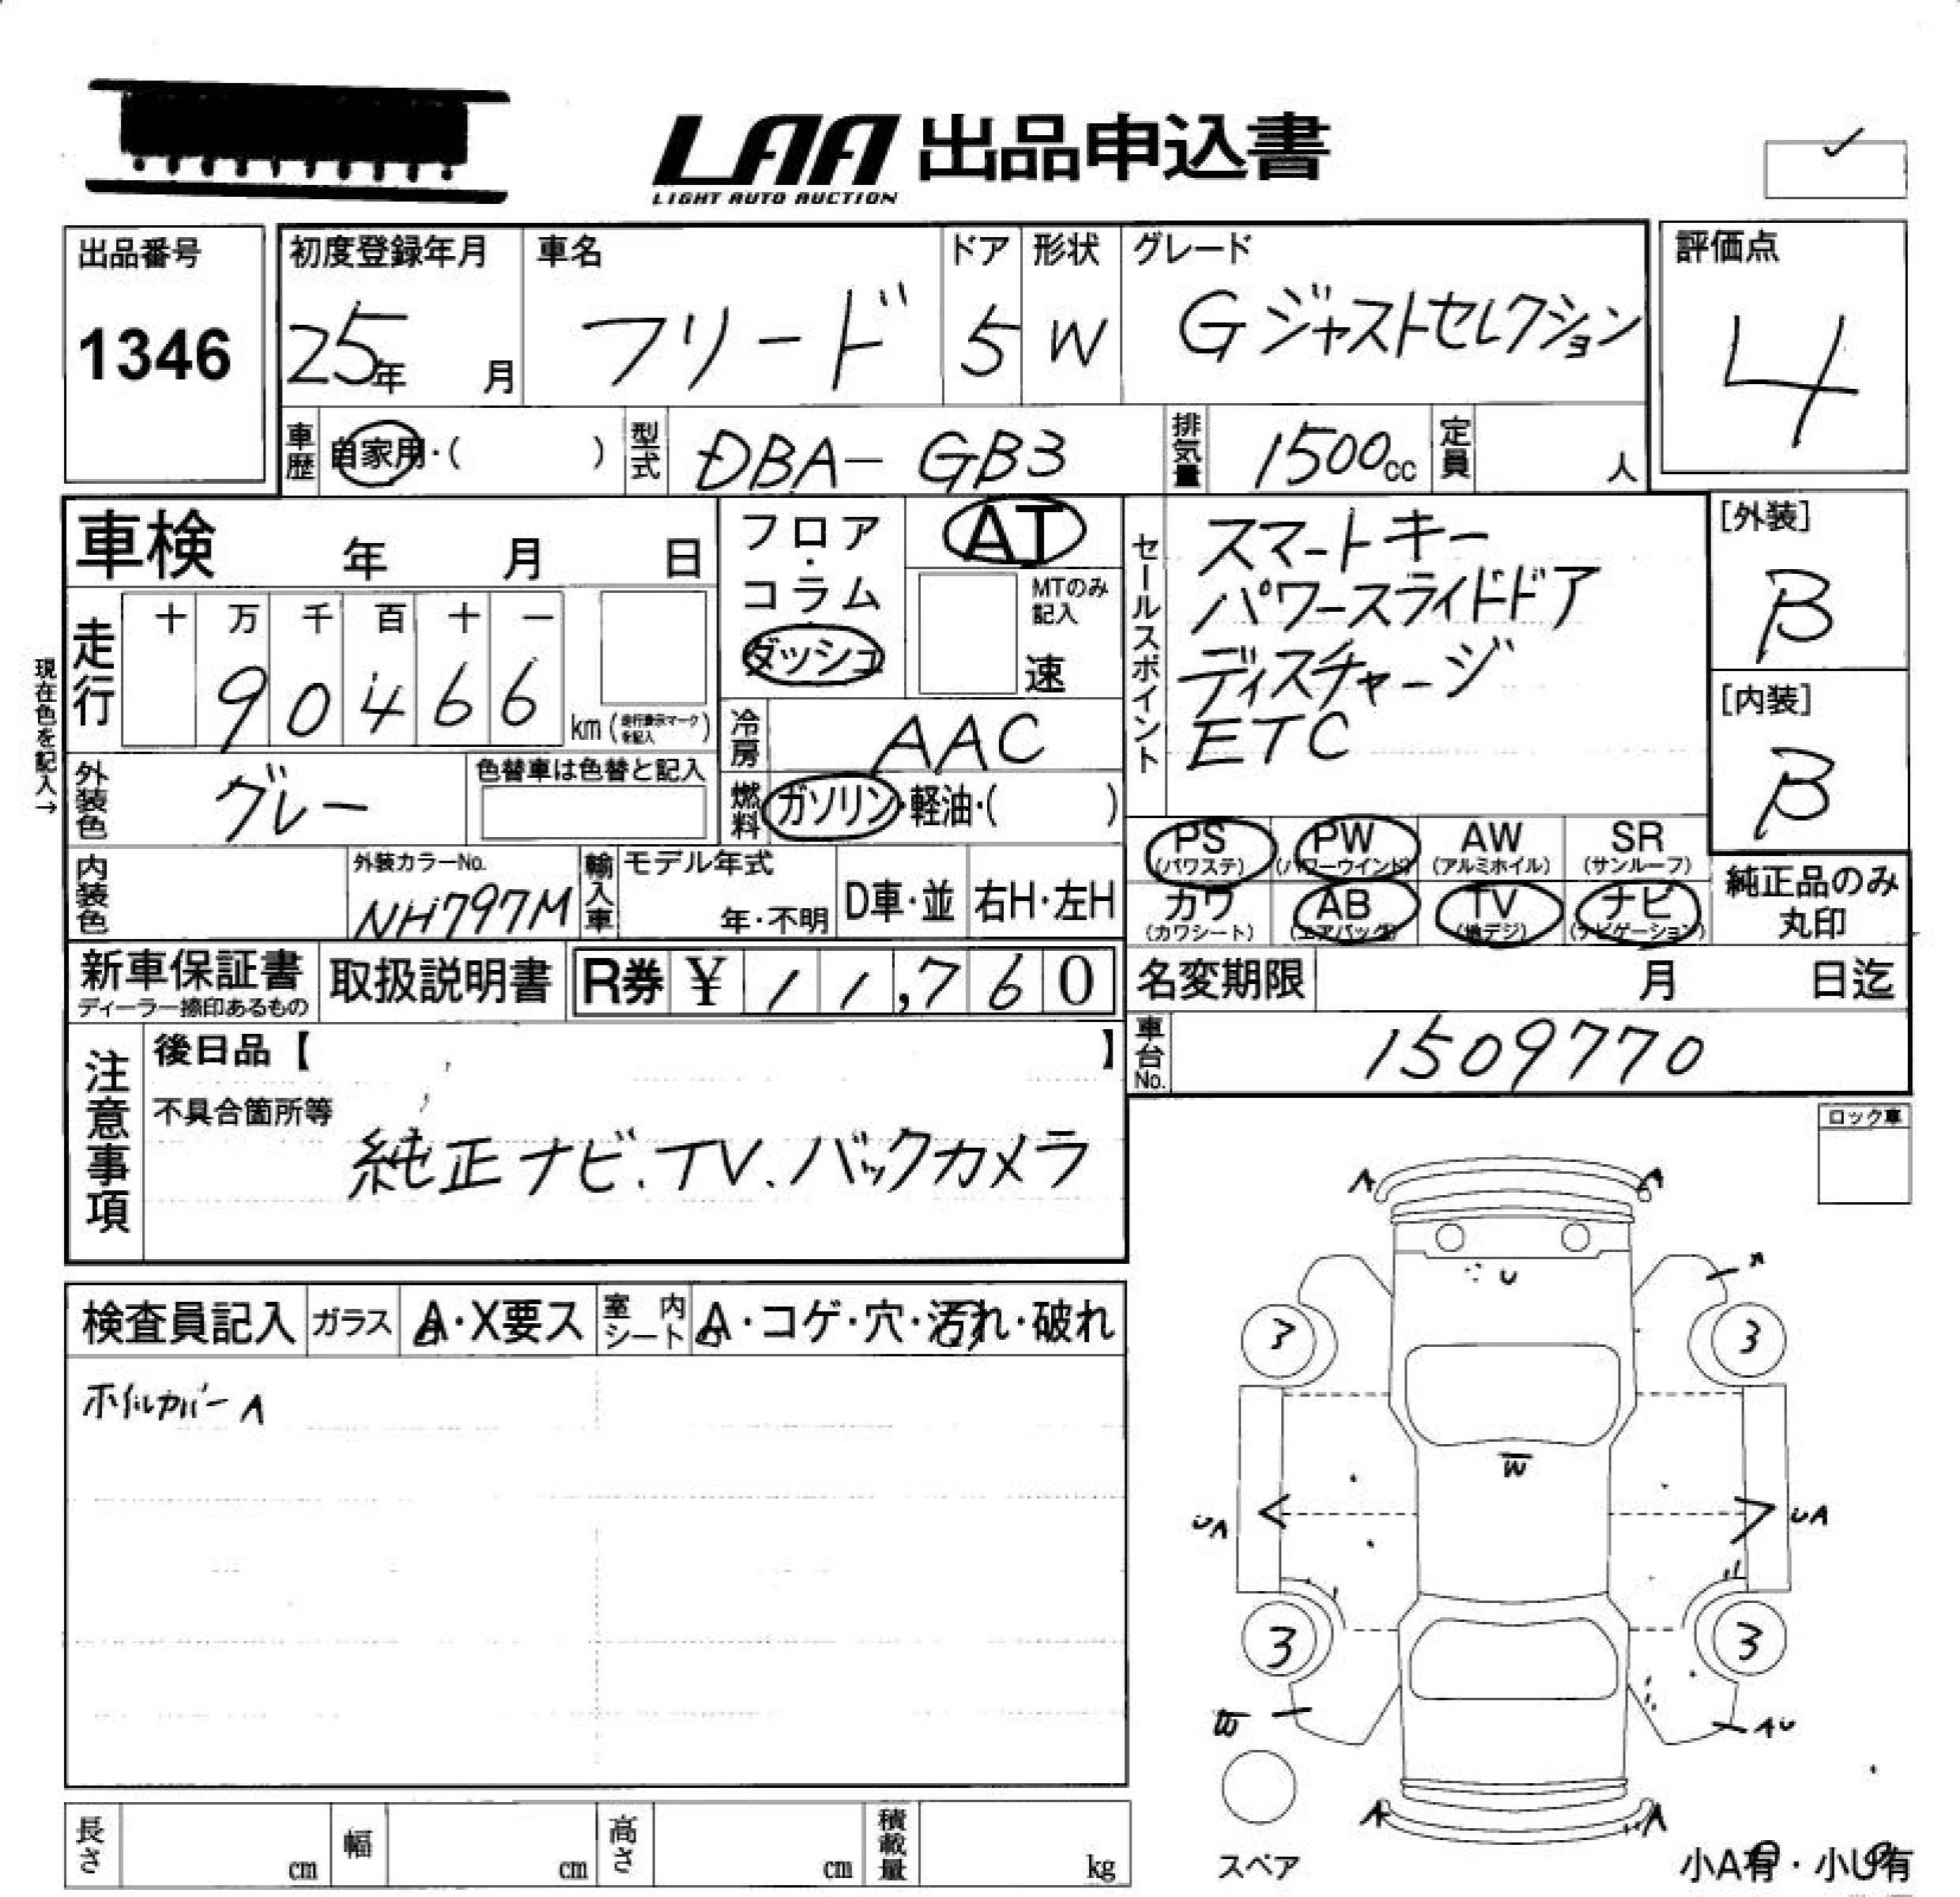 LAA 出品申込書
LIGHT AUTO AUCTION
出品番号
1346
初度登録年月
25年 月
車名
フリード
ドア
5
形状
W
グレード
G ジャストセレクション
評価点
4
車歴 自家用・( )
型式 DBA- GB3
排気量 1500cc
定員 人
車検 年 月 日
走行 十 万 千 百 十 一
9 0 4 6 6
km (走行表示マークを記入)
現在色を記入→
外装色 グレー
色替車は色替と記入
内装色
外装カラーNo.
NH797M
輸入車 モデル年式
年・不明
D車・並
右H・左H
フロア・コラム・ダッシュ
AT
MTのみ記入
速
冷房 AAC
燃料 ガソリン・軽油・( )
セールスポイント
スマートキー
パワースライドドア
ディスチャージ
ETC
[外装]
B
[内装]
B
PS (パワステ)
PW (パワーウインド)
AW (アルミホイル)
SR (サンルーフ)
カワ (カワシート)
AB (エアバッグ)
TV (地デジ)
ナビ (ナビゲーション)
純正品のみ
丸印
新車保証書
ディーラー捺印あるもの
取扱説明書
R券 ¥ 11,760
名変期限 月 日迄
車台No. 1509770
注意事項
後日品【 】
不具合箇所等
純正ナビ.TV.バックカメラ
ロック車
検査員記入
ガラス A・X要ス
室内シート A・コゲ・穴・汚れ・破れ
ホイルカバーA
A A
U A
3 3
W
UA UA
3 3
AU
A A
スペア
小A有・小U有
長さ cm
幅 cm
高さ cm
積載量 kg